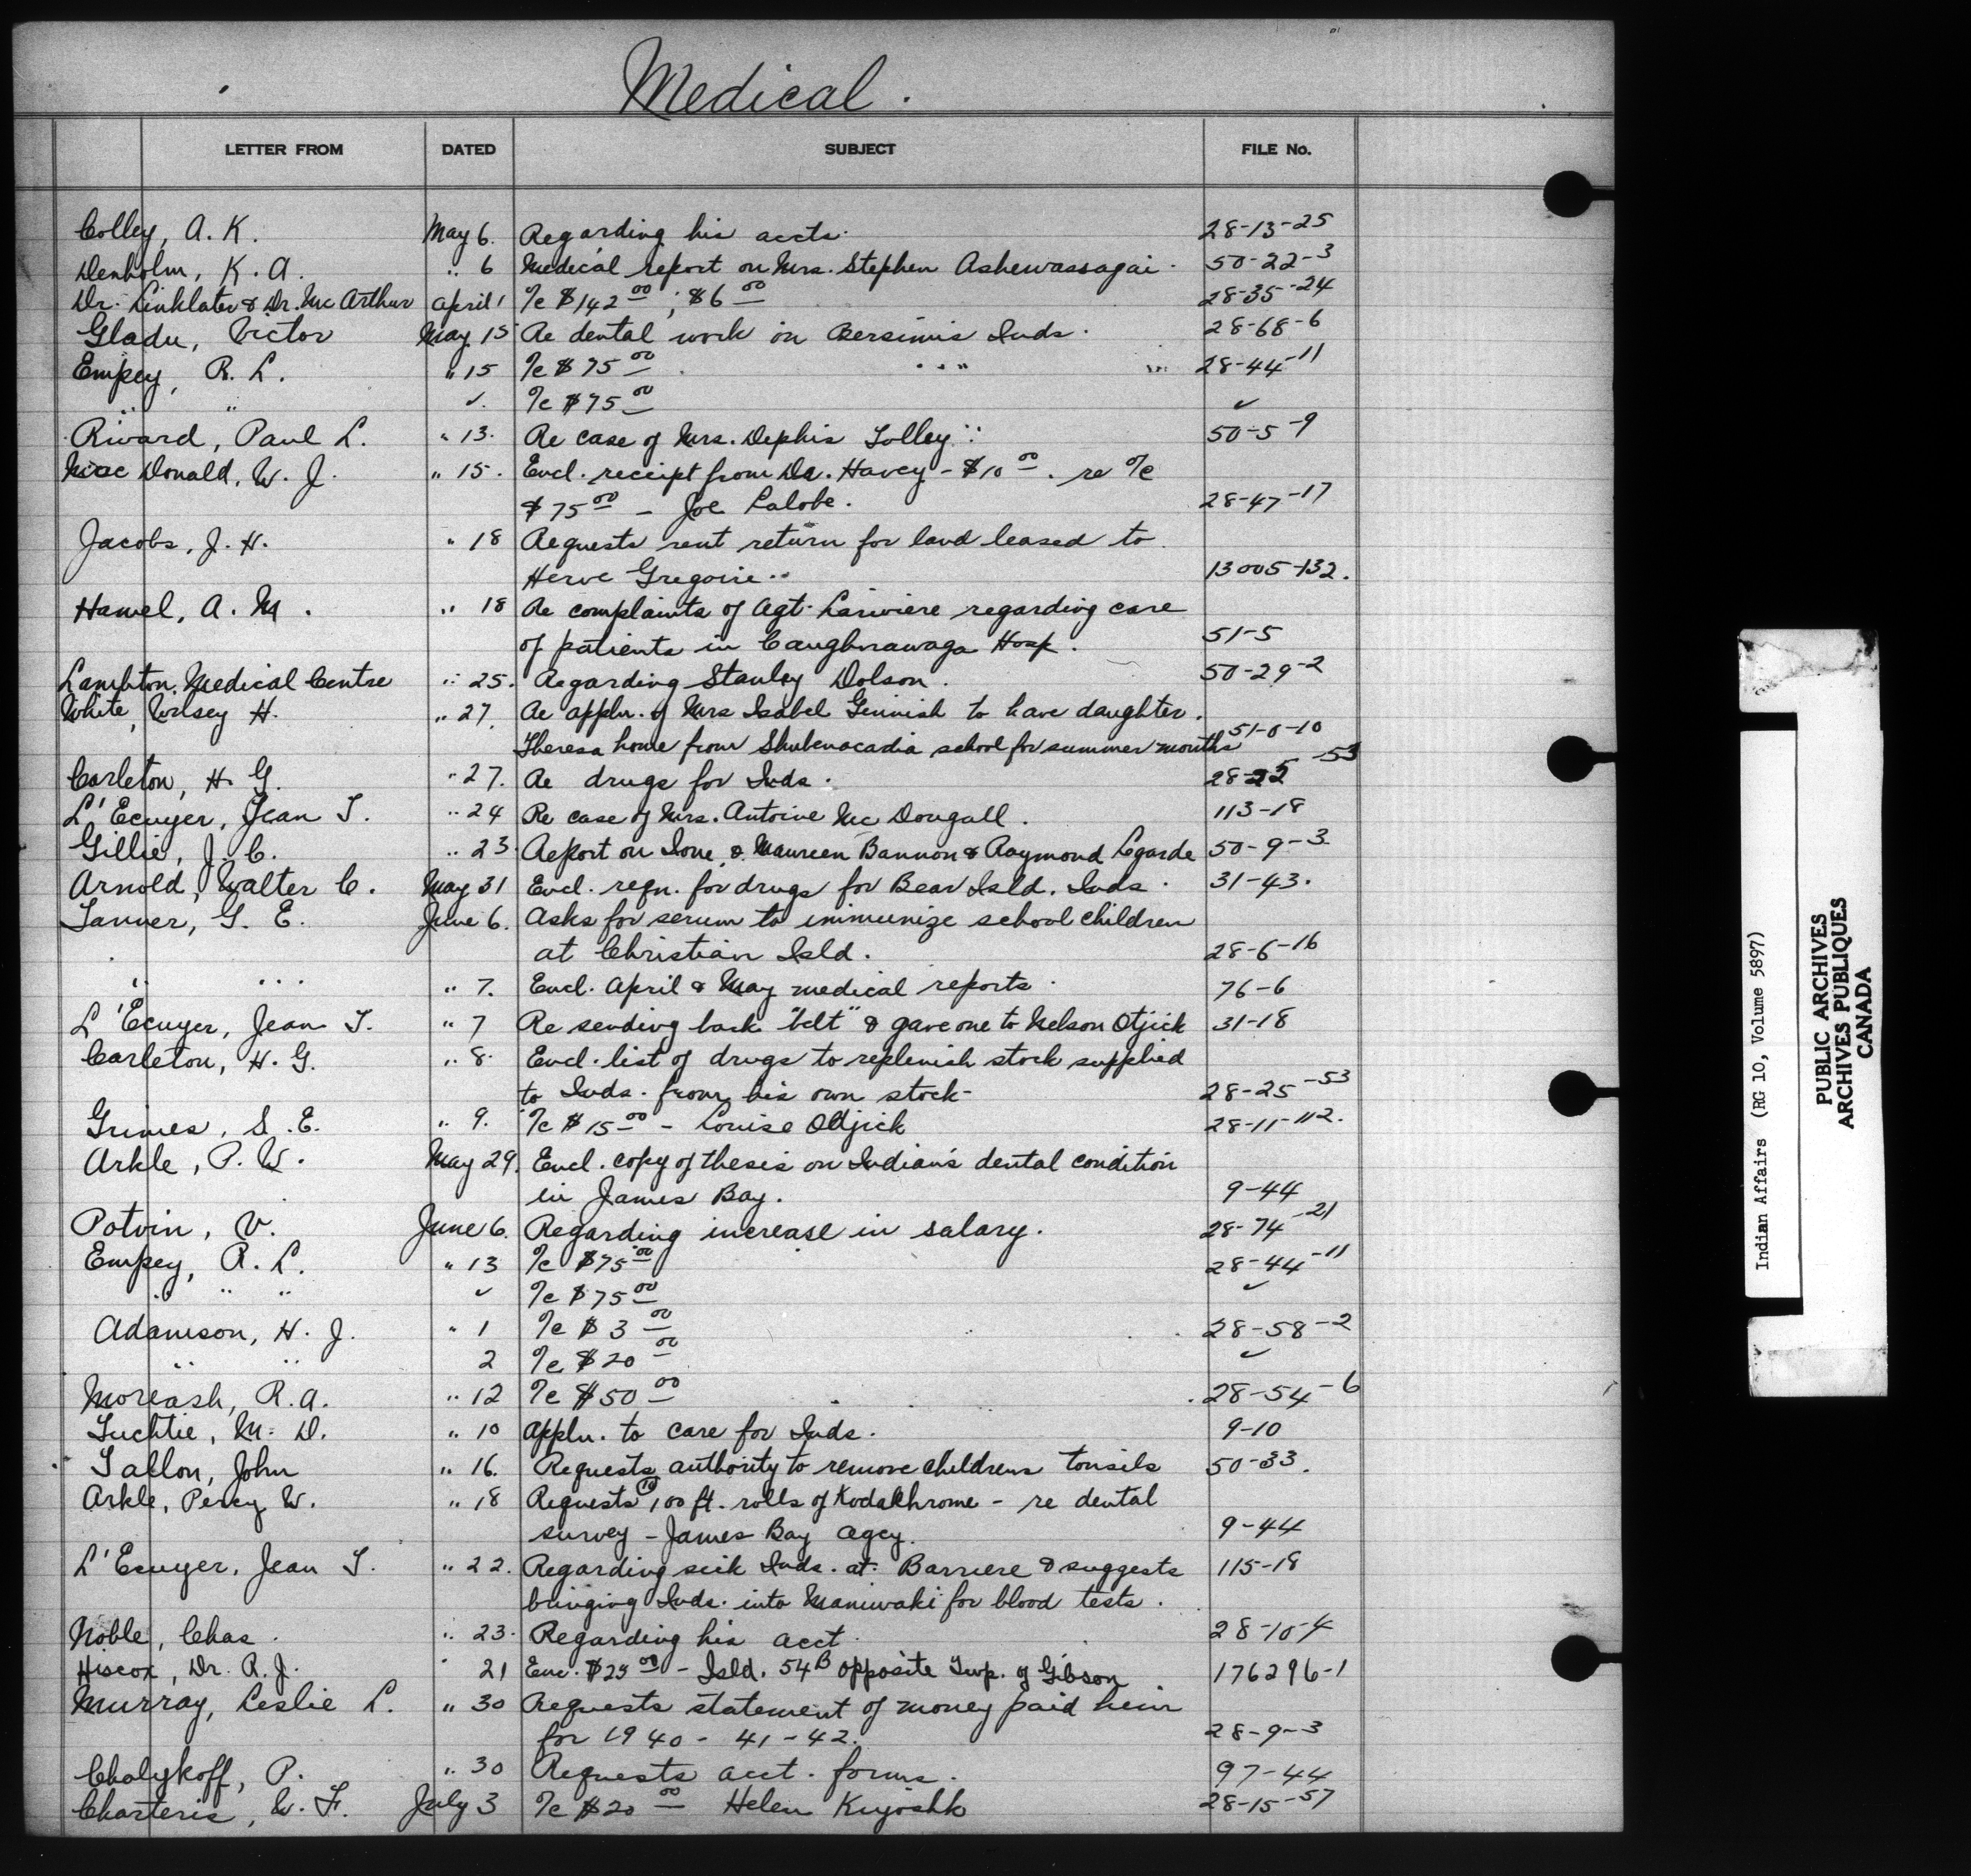 Medical.
LETTER FROM DATED SUBJECT FILE No.
Colley, A. K. May 6. Regarding his accts. 28-13-25
Denholm, K. A. " 6 Medical report on Mrs. Stephen Ashewassagai. 50-22-3
Dr. Linklater & Dr. McArthur April 1 %c $142 00 ; $6 00 28-35-24
Gladu, Victor May 15 Re dental work on Bersimis Inds. 28-68-6
Empey, R. L. " 15 %c $75 00 28-44-11
" " ✓. %c $75 00 ✓
Rivard, Paul L. " 13. Re case of Mrs. Dephis Tolley 50-5-9
MacDonald, W. J. " 15. Encl. receipt from Dr. Havey - $10 00. re %c
$75 00 - Joe Lalobe. 28-47-17
Jacobs, J. H. " 18 Requests rent return for land leased to
Herve Gregoire.. 13005-132.
Hamel, A. M. " 18 Re complaints of Agt. Lariviere regarding care
of patients in Caughnawaga Hosp. 51-5
Lambton Medical Centre " 25. Regarding Stanley Dolson. 50-29-2
White, Wilsey H. " 27. Re appln. of Mrs Isabel Ginnish to have daughter.
Theresa home from Shubenacadia school for summer months 51-0-10
Carleton, H. G. " 27. Re drugs for Inds. 28-25-53
L'Ecuyer, Jean T. " 24 Re case of Mrs. Antoine McDougall. 113-18
Gillie, J. C. " 23. Report on Ione & Maureen Bannon & Raymond Lgarde 50-9-3
Arnold, Walter C. May 31 Encl. reqn. for drugs for Bear Isld. Inds. 31-43.
Tanner, G. E. June 6. Asks for serum to immunize school children
at Christian Isld. 28-6-16
" " " 7. Encl. April & May medical reports. 76-6
L'Ecuyer, Jean T. " 7 Re sending back "belt" & gave one to Nelson Otjick 31-18
Carleton, H. G. " 8. Encl. list of drugs to replenish stock supplied
to Inds. from his own stock- 28-25-53
Grimes, S. E. " 9. %c $15 00 - Louise Odjick 28-11-112.
Arkle, P. W. May 29. Encl. copy of thesis on Indian's dental condition
in James Bay. 9-44
Potvin, V. June 6. Regarding increase in salary. 28-74-21
Empey, R. L. " 13 %c $75 00 28-44-11
" " " ✓ %c $75 00 ✓
Adamson, H. J. " 1 %c $3 00 28-58-2
" " 2 %c $20 00 ✓
Moreash, R. A. " 12 %c $50 00 28-54-6
Tuchtie, M. D. " 10 Appln. to care for Inds. 9-10
Tallon, John " 16. Requests authority to remove childrens tonsils 50-33.
Arkle, Percy W. " 18 Requests 10 100 ft. rolls of Kodakhrome - re dental
survey - James Bay Agcy. 9-44
L'Ecuyer, Jean T. " 22. Regarding sick Inds. at Barriere & suggests 115-18
bringing Inds. into Maniwaki for blood tests.
Noble, Chas. " 23. Regarding his acct. 28-10-4
Hiscox, Dr. R. J. " 21 Enc. $25 00 - Isld. 54B opposite Twp. of Gibson 176296-1
Murray, Leslie L. " 30 Requests statement of money paid him
for 1940 - 41 - 42. 28-9-3
Chalykoff, P. " 30 Requests acct. forms. 97-44
Charteris, W. F. July 3 %c $20 00 Helen Kiyoshk 28-15-57
Indian Affairs (RG 10, Volume 5897)
PUBLIC ARCHIVES
ARCHIVES PUBLIQUES
CANADA